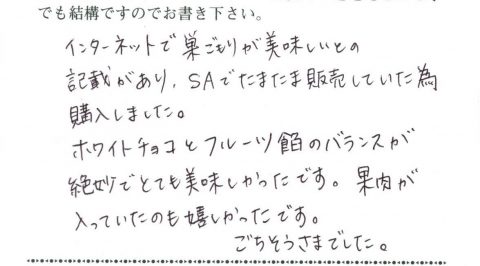 でも結構ですのでお書き下さい。
インターネットで巣ごもりが美味しいとの
記載があり、SAでたまたま販売していた為
購入しました。
ホワイトチョコとフルーツ餡のバランスが
絶妙でとても美味しかったです。果肉が
入っていたのも嬉しかったです。
ごちそうさまでした。